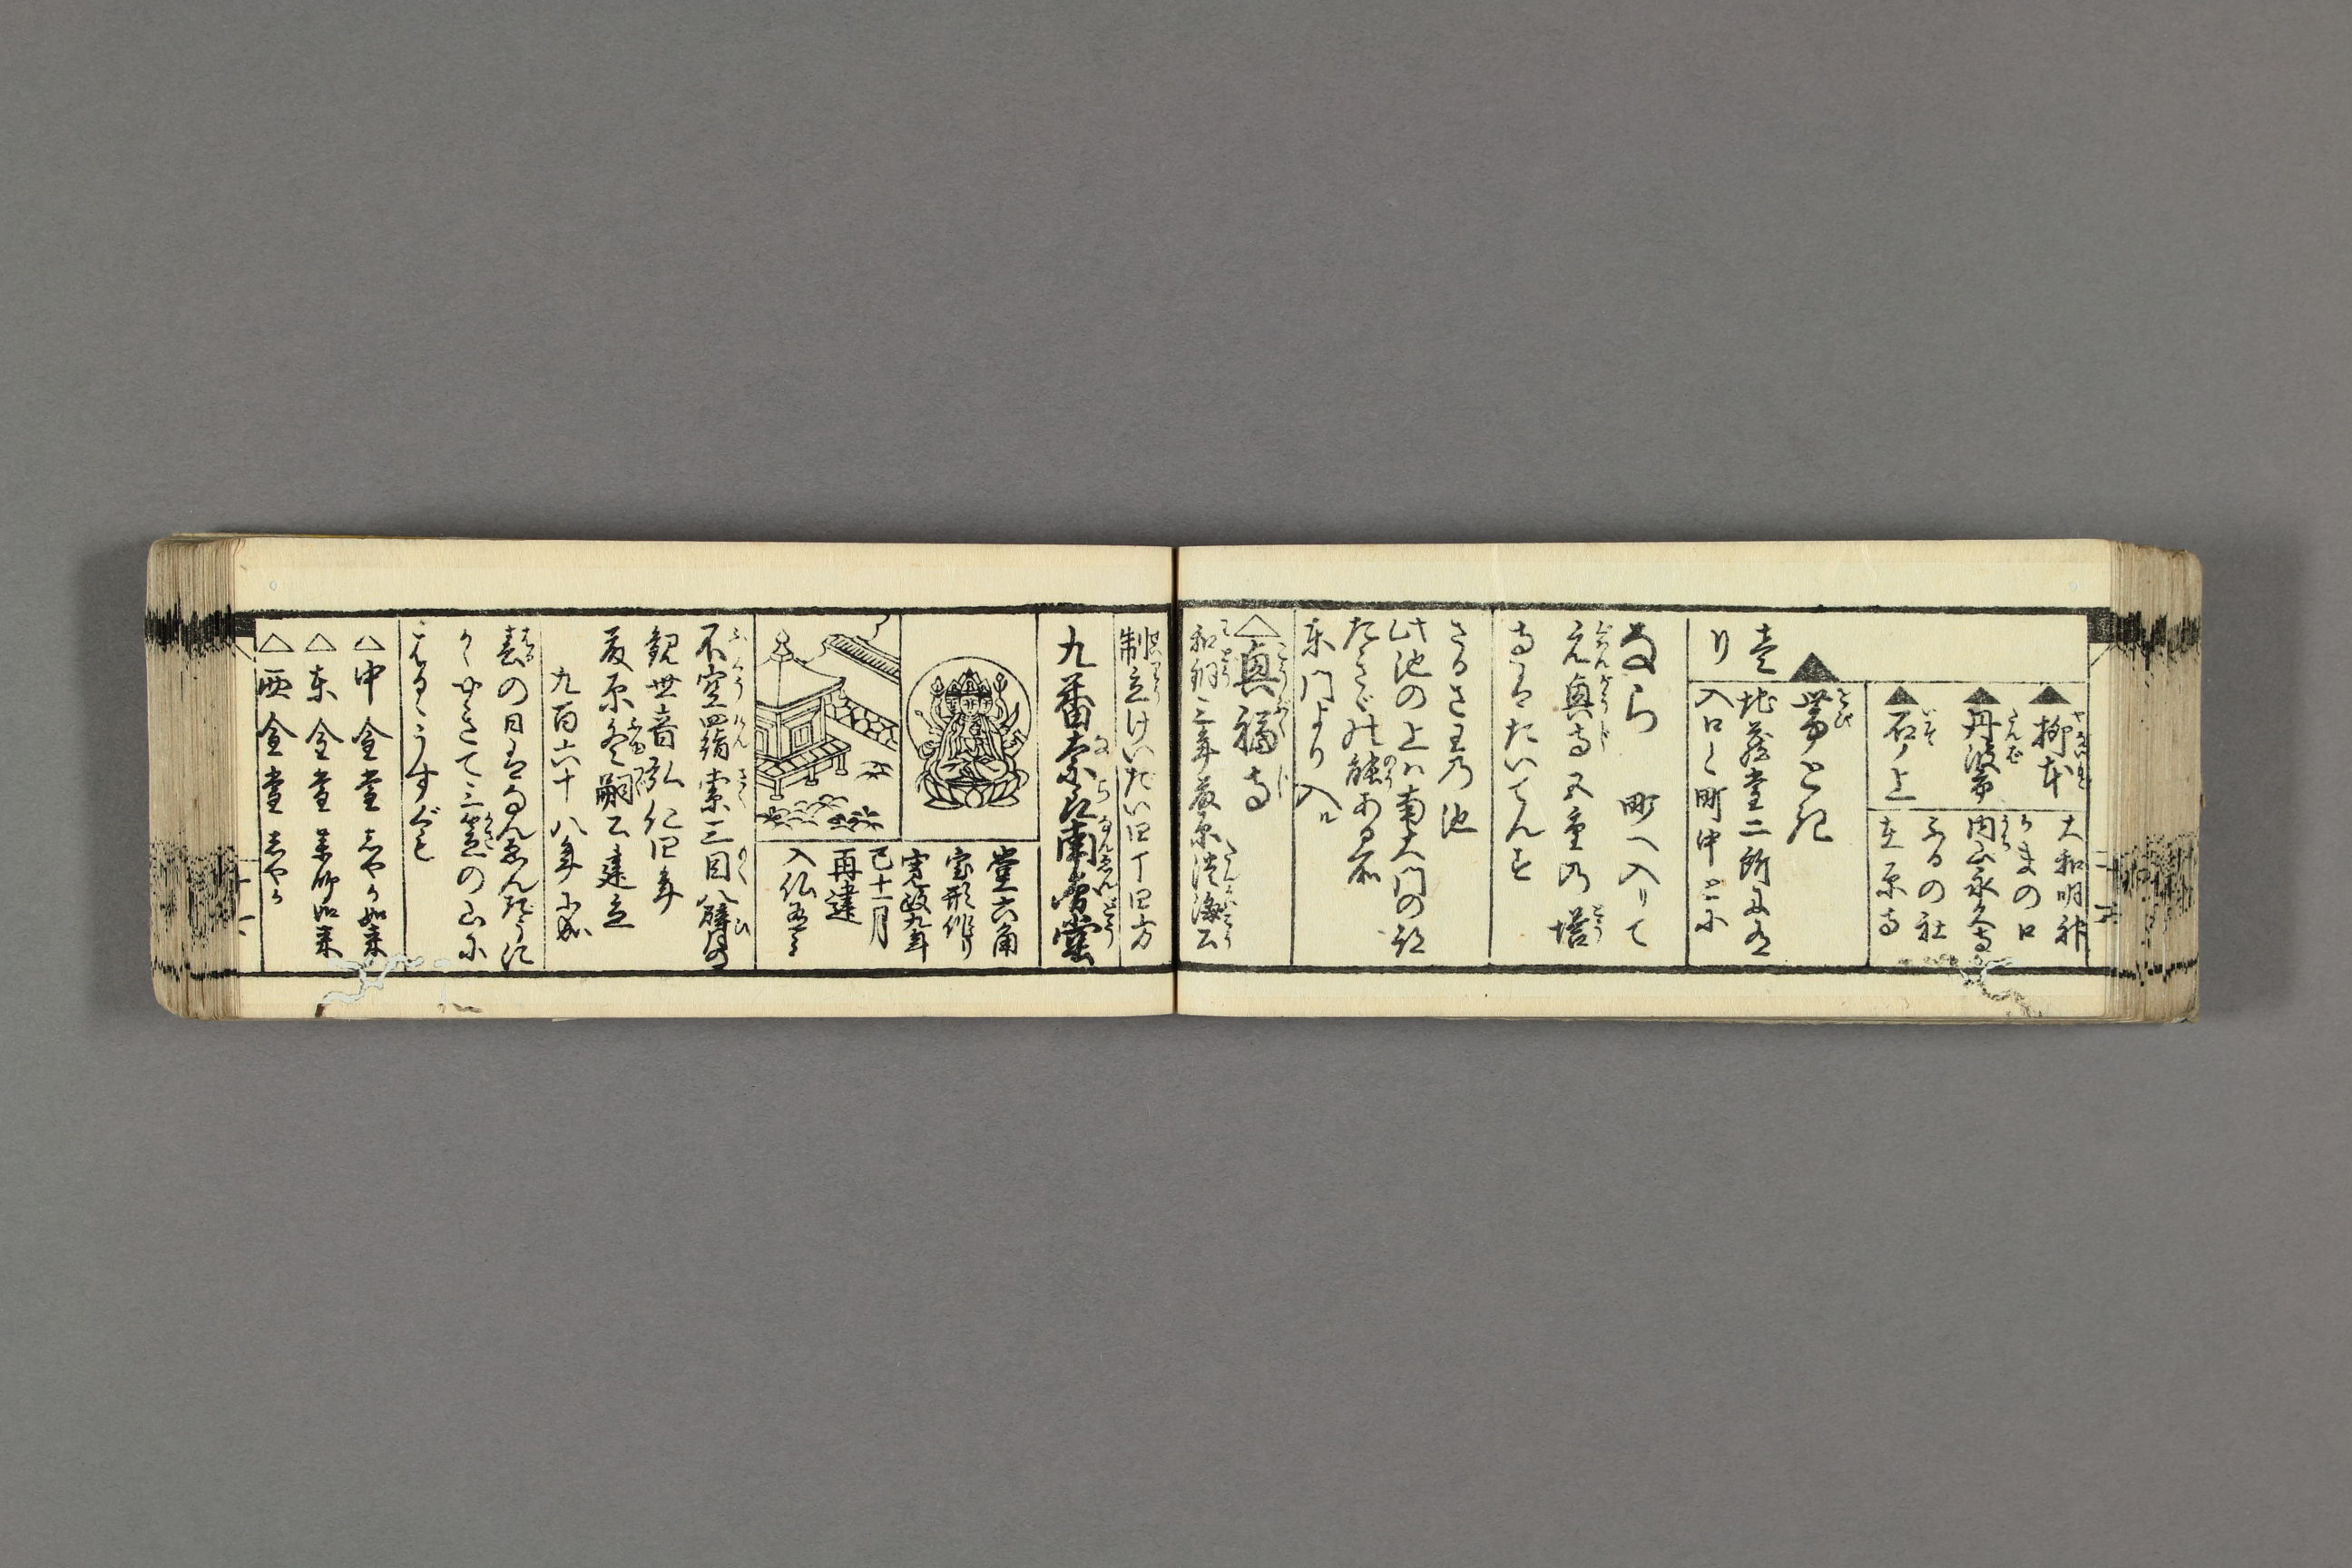 ▲柳本
大和明神
かまの口
▲丹波市
内山永久寺
ふるの社
▲石ノ上
在原寺
▲帯とけ
地蔵堂二所
入口く町中ニ
なら 町へ入りて
元興寺五重乃塔
さるさわ乃池
此池の上ハ南大門の
たきぎ能ある所
東門より入ル
△興福寺
和銅三年藤原淡海公
制立けいだい四丁四方
九番奈良南円堂
堂六角
宝形作り
寛政九年
巳十一月
再建
入仏
不空羂索三目八臂の
観世音弘仁四年
藤原冬嗣公建立
九百六十八年
春の日はなんゑんだうに
かゞやきて三笠の山に
はるゝうすぐも
△中金堂しやか如来
△東金堂薬師如来
△西金堂しやか